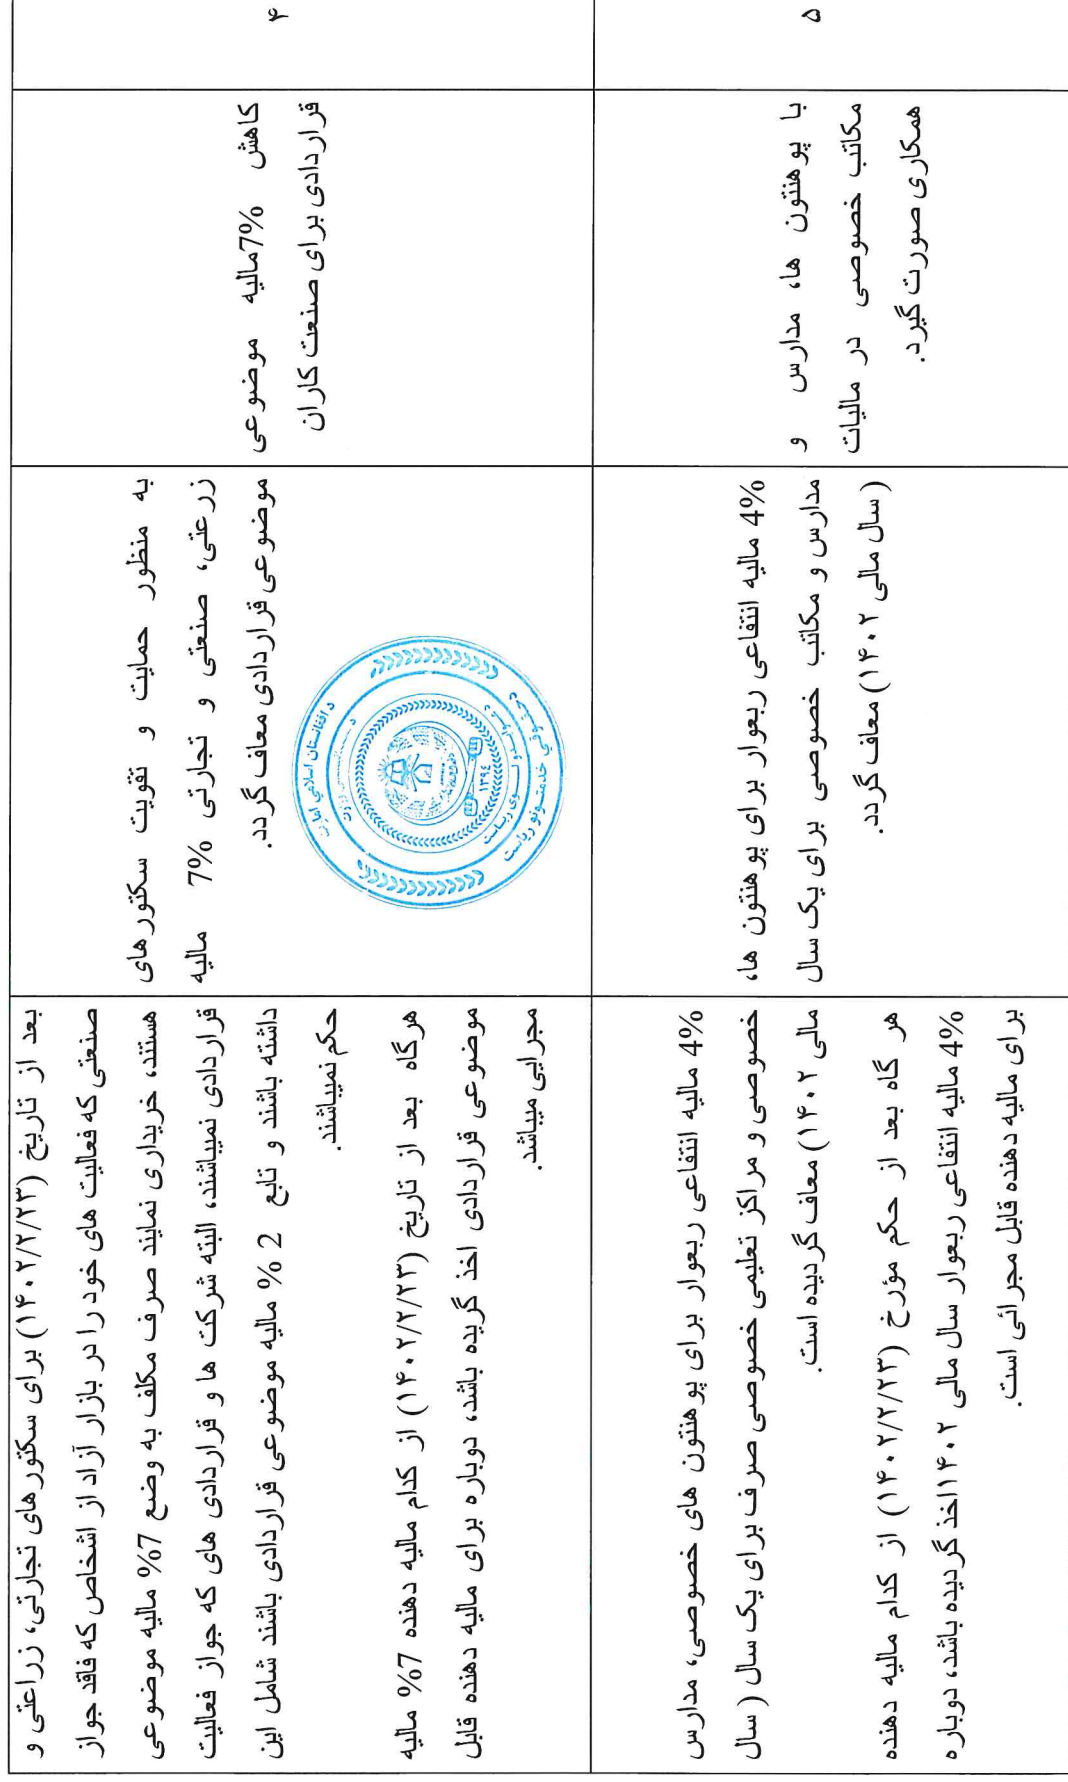 ۴
کاهش 7% مالیه موضوعی
قراردادی برای صنعت کاران
به منظور حمایت و تقویت سکتورهای
زرعتی، صنعتی و تجارتی 7% مالیه
موضوعی قراردادی معاف گردد.
د افغانستان اسلامي امارت
۱۳۹٤
بعد از تاریخ (۱۴۰۲/۲/۲۳) برای سکتورهای تجارتی، زراعتی و
صنعتی که فعالیت های خود را در بازار آزاد از اشخاص که فاقد جواز
هستند، خریداری نمایند صرف مکلف به وضع 7% مالیه موضوعی
قراردادی نمیباشند، البته شرکت ها و قراردادی های که جواز فعالیت
داشته باشند و تابع 2 % مالیه موضوعی قراردادی باشند شامل این
حکم نمیباشند.
هرگاه بعد از تاریخ (۱۴۰۲/۲/۲۳) از کدام مالیه دهنده 7% مالیه
موضوعی قراردادی اخذ گریده باشد، دوباره برای مالیه دهنده قابل
مجرایی میباشد.
۵
با پوهنتون ها، مدارس و
مکاتب خصوصی در مالیات
همکاری صورت گیرد.
4% مالیه انتفاعی ربعوار برای پوهنتون ها،
مدارس و مکاتب خصوصی برای یک سال
(سال مالی ۱۴۰۲) معاف گردد.
4% مالیه انتفاعی ربعوار برای پوهنتون های خصوصی، مدارس
خصوصی و مراکز تعلیمی خصوصی صرف برای یک سال (سال
مالی ۱۴۰۲) معاف گردیده است.
هر گاه بعد از حکم مؤرخ (۱۴۰۲/۲/۲۳) از کدام مالیه دهنده
4% مالیه انتفاعی ربعوار سال مالی ۱۴۰۲ اخذ گردیده باشد، دوباره
برای مالیه دهنده قابل مجرائی است.